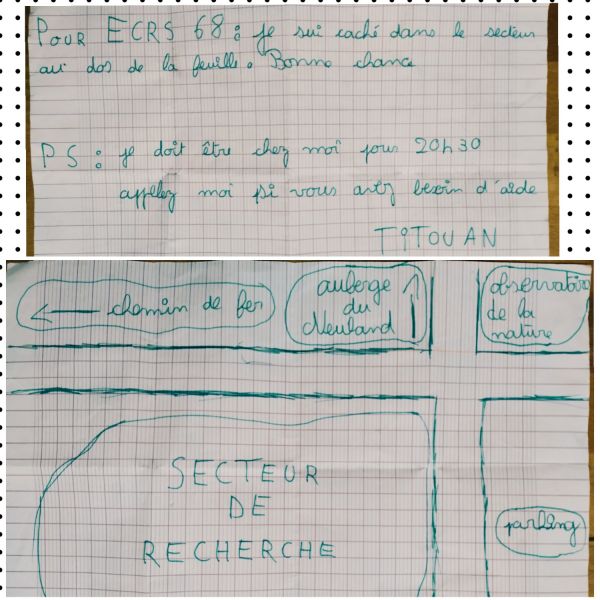 POUR ECRS 68 : je sui caché dans le secteur
au dos de la feuille. Bonne chance
PS : je doit être chez moi pour 20h30
appelez moi si vous avez besoin d'aide
TITOUAN
← chemin de fer
auberge
du
Neuland ↑
observatoire
de la
nature
SECTEUR
DE
RECHERCHE
parking